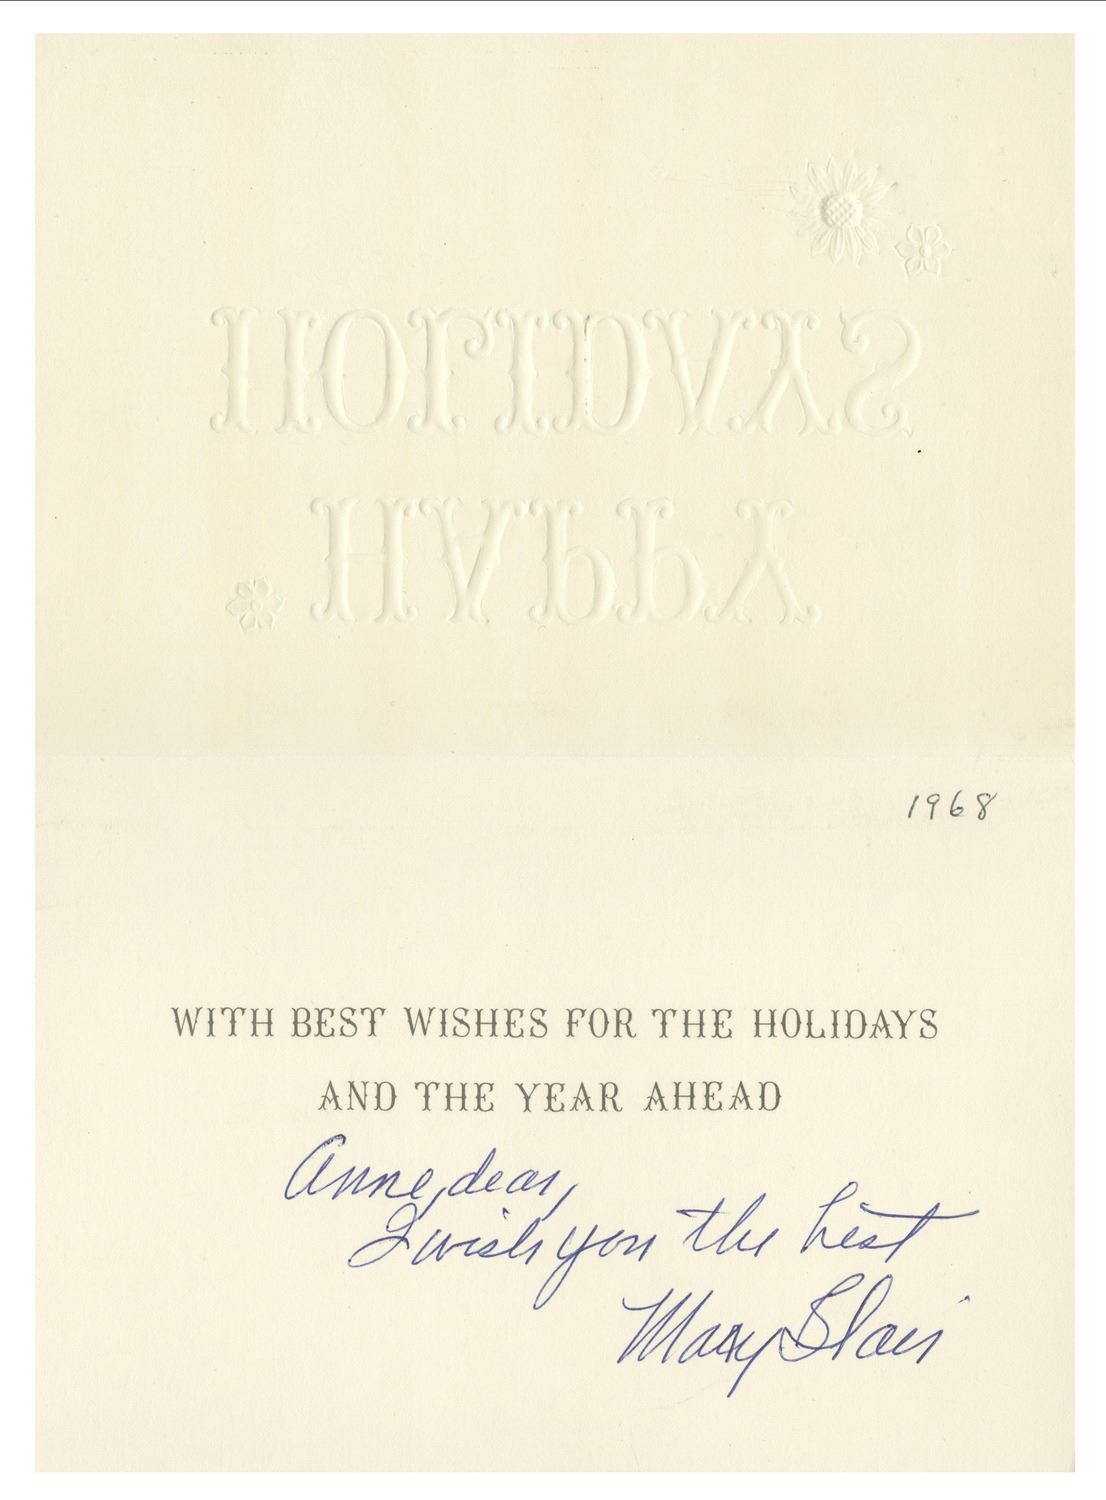 HOLIDAYS
HAPPY
1968
WITH BEST WISHES FOR THE HOLIDAYS
AND THE YEAR AHEAD
Anne, dear,
I wish you the best
Mary Blair